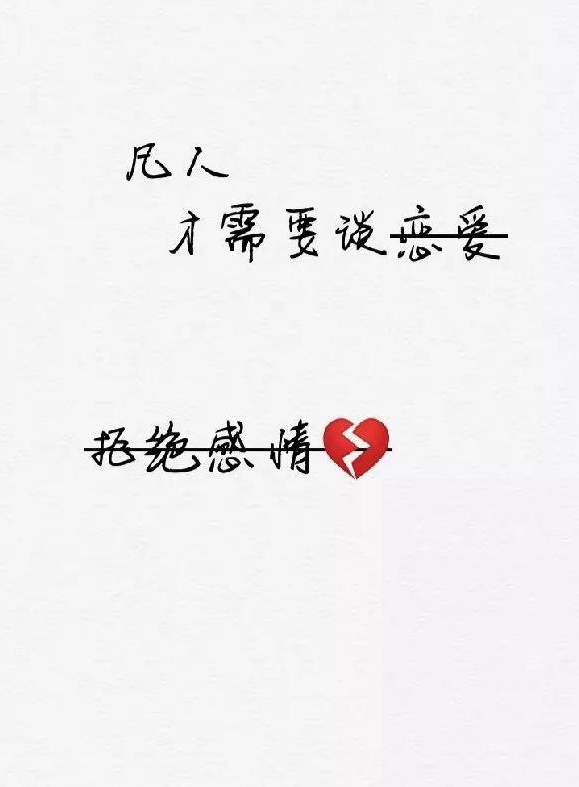 凡人
才需要谈恋爱
拒绝感情💔